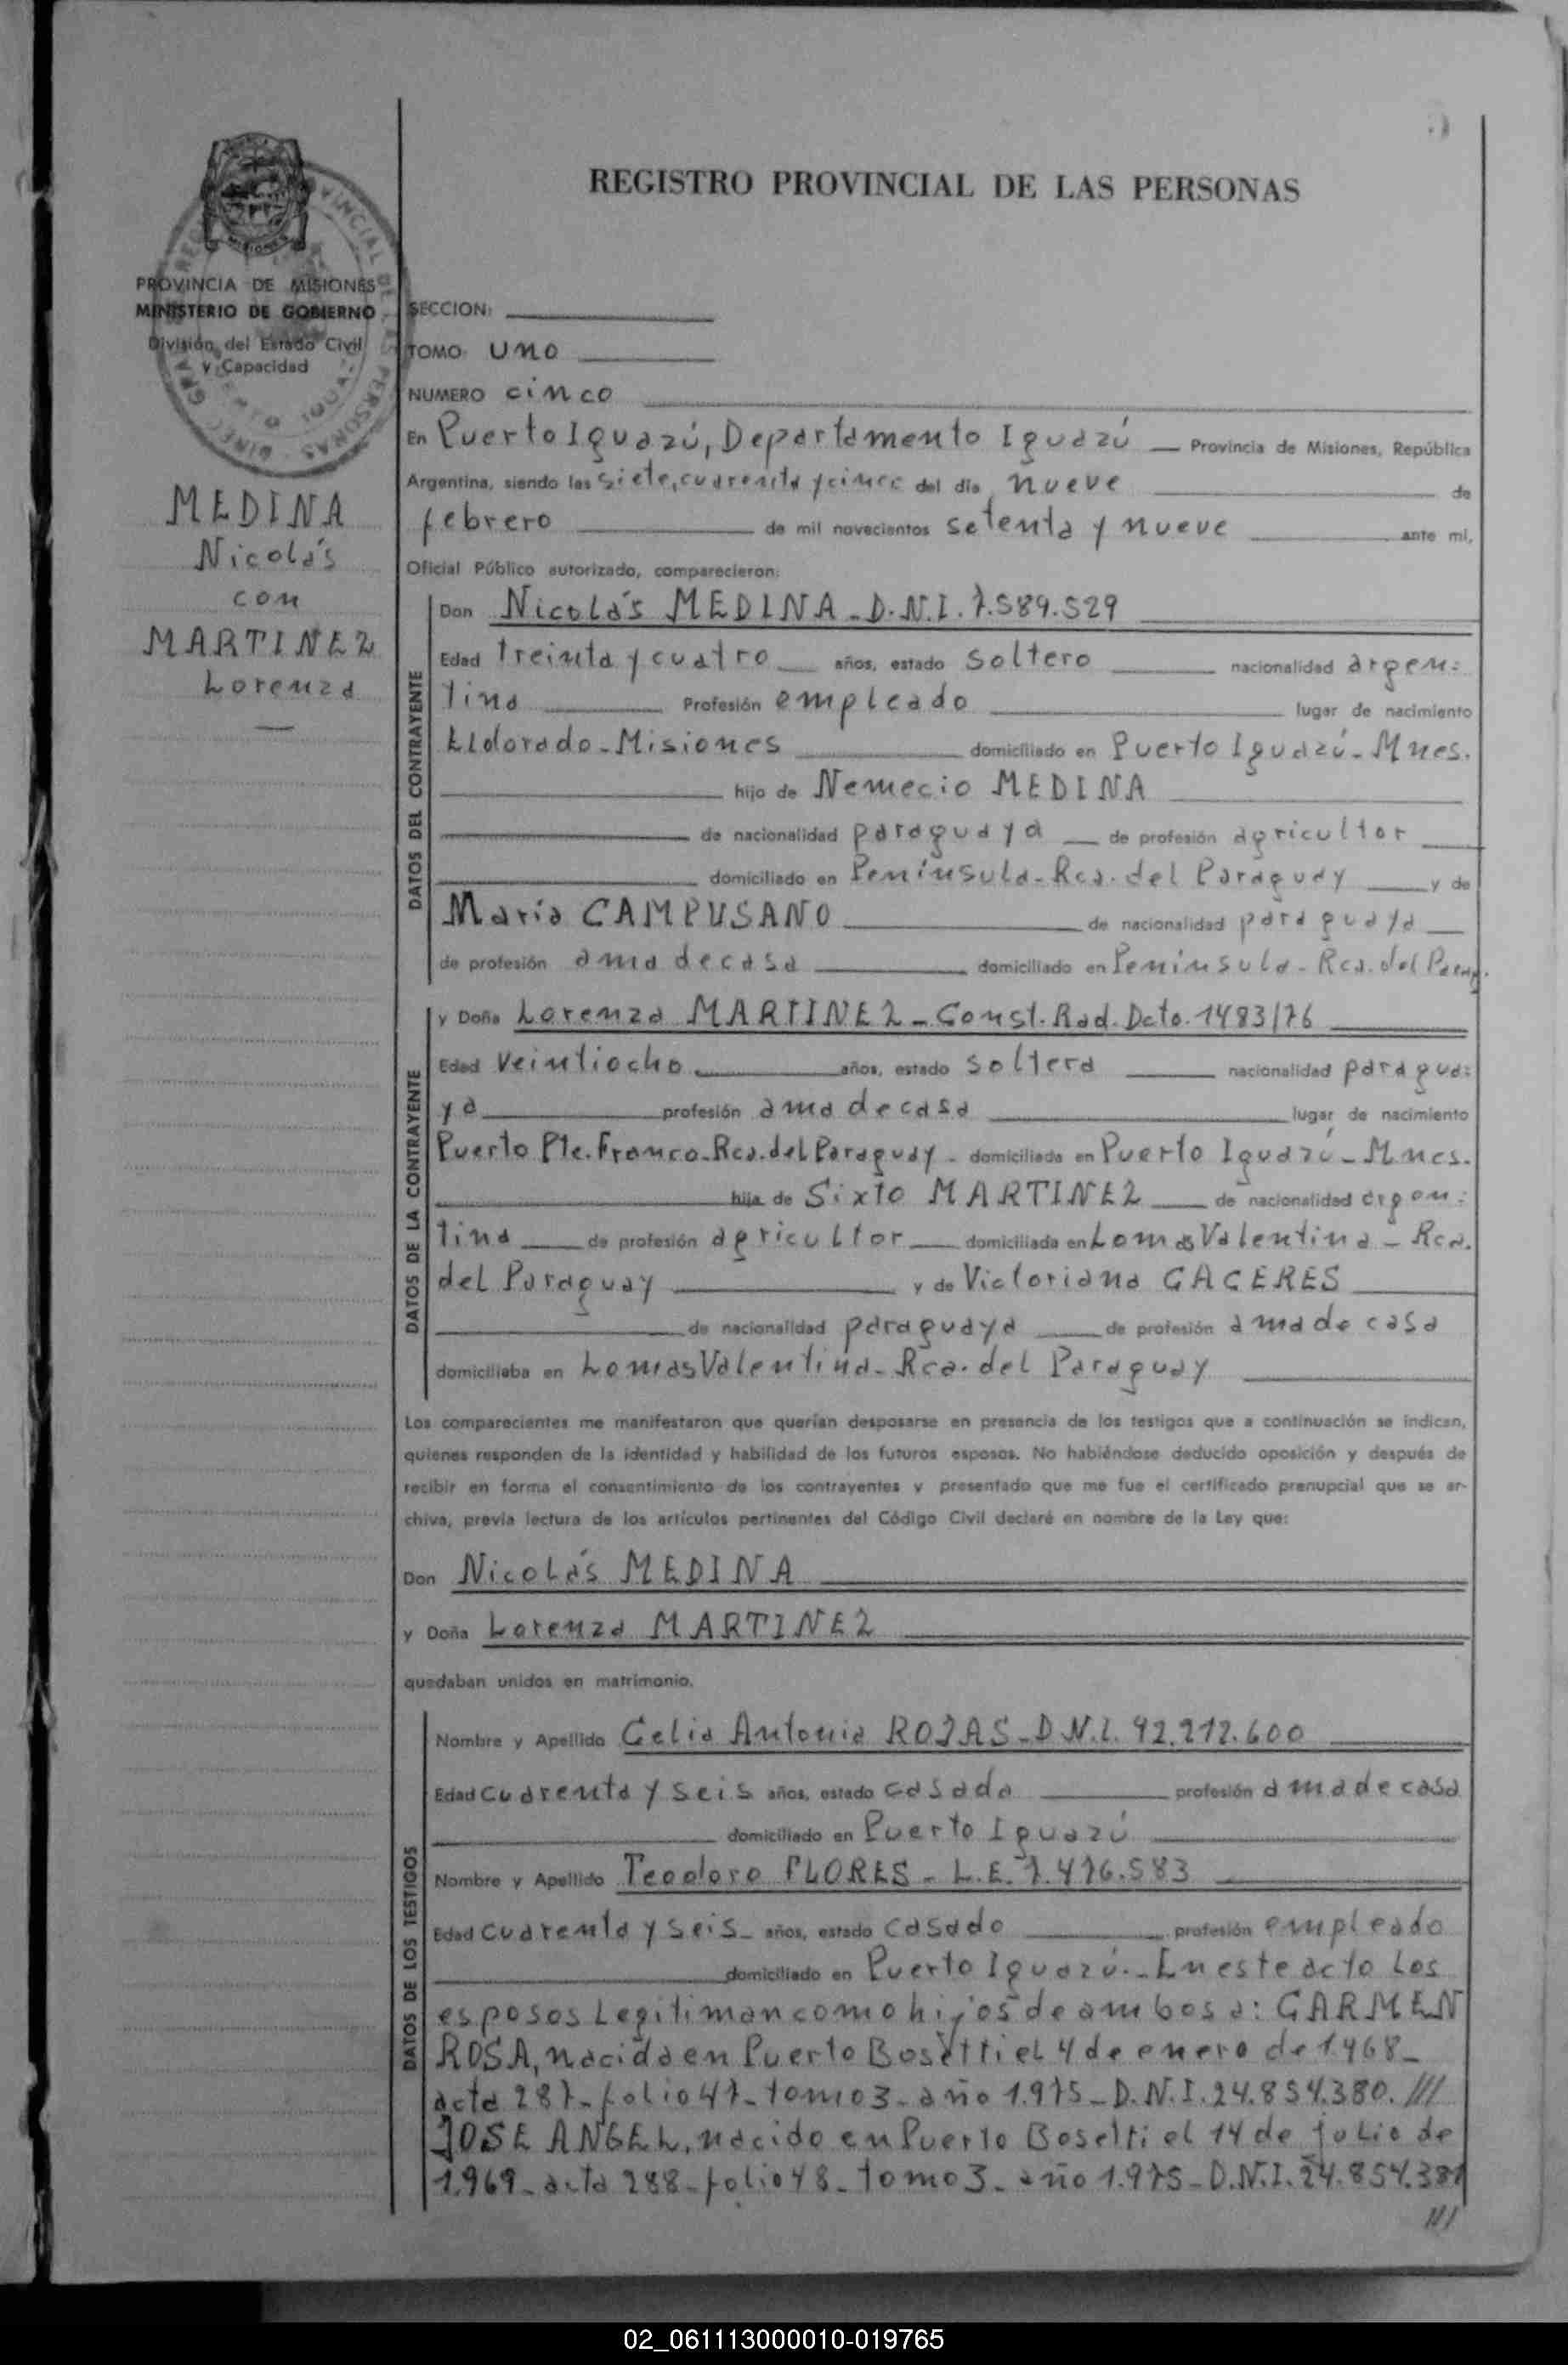 REGISTRO PROVINCIAL DE LAS PERSONAS
PROVINCIA DE MISIONES
MINISTERIO DE GOBIERNO
División del Estado Civil
y Capacidad
MEDINA
Nicolás
con
MARTINEZ
Lorenza
SECCION:
TOMO: uno
NUMERO cinco
En Puerto Iguazú, Departamento Iguazú Provincia de Misiones, República
Argentina, siendo las siete, cuarenta y cinco del día nueve de
febrero de mil novecientos setenta y nueve ante mí,
Oficial Público autorizado, comparecieron:
DATOS DEL CONTRAYENTE
Don Nicolás MEDINA - D.N.I. 7.589.529
Edad treinta y cuatro años, estado soltero nacionalidad argen=
tina Profesión empleado lugar de nacimiento
Eldorado - Misiones domiciliado en Puerto Iguazú - Mnes.
hijo de Nemecio MEDINA
de nacionalidad paraguaya de profesión agricultor
domiciliado en Península - Rca. del Paraguay y de
María CAMPUSANO de nacionalidad paraguaya
de profesión ama de casa domiciliado en Península - Rca. del Parag.
DATOS DE LA CONTRAYENTE
y Doña Lorenza MARTINEZ - Const. Rad. Dcto. 1483/76
Edad veintiocho años, estado soltera nacionalidad paragua=
ya profesión ama de casa lugar de nacimiento
Puerto Pte. Franco - Rca. del Paraguay - domiciliada en Puerto Iguazú - Mnes.
hija de Sixto MARTINEZ de nacionalidad argen=
tina de profesión agricultor domiciliada en Lomas Valentina - Rca.
del Paraguay y de Victoriana CACERES
de nacionalidad paraguaya de profesión ama de casa
domiciliaba en Lomas Valentina - Rca. del Paraguay
Los comparecientes me manifestaron que querían desposarse en presencia de los testigos que a continuación se indican,
quienes responden de la identidad y habilidad de los futuros esposos. No habiéndose deducido oposición y después de
recibir en forma el consentimiento de los contrayentes y presentado que me fue el certificado prenupcial que se ar-
chiva, previa lectura de los artículos pertinentes del Código Civil declaré en nombre de la Ley que:
Don Nicolás MEDINA
y Doña Lorenza MARTINEZ
quedaban unidos en matrimonio.
DATOS DE LOS TESTIGOS
Nombre y Apellido Celia Antonia ROJAS - D.N.I. 92.212.600
Edad cuarenta y seis años, estado casada profesión ama de casa
domiciliado en Puerto Iguazú
Nombre y Apellido Teodoro FLORES - L.E. 7.476.583
Edad cuarenta y seis - años, estado casado profesión empleado
domiciliado en Puerto Iguazú.- En este acto los
esposos legitiman como hijos de ambos a: CARMEN
ROSA, nacida en Puerto Bosetti el 4 de enero de 1.968 -
acta 287 - folio 47 - tomo 3 - año 1.975 - D.N.I. 24.854.380. ///
JOSE ANGEL, nacido en Puerto Bosetti el 14 de julio de
1.969 - acta 288 - folio 48 - tomo 3 - año 1.975 - D.N.I. 24.854.381
///
02_061113000010-019765